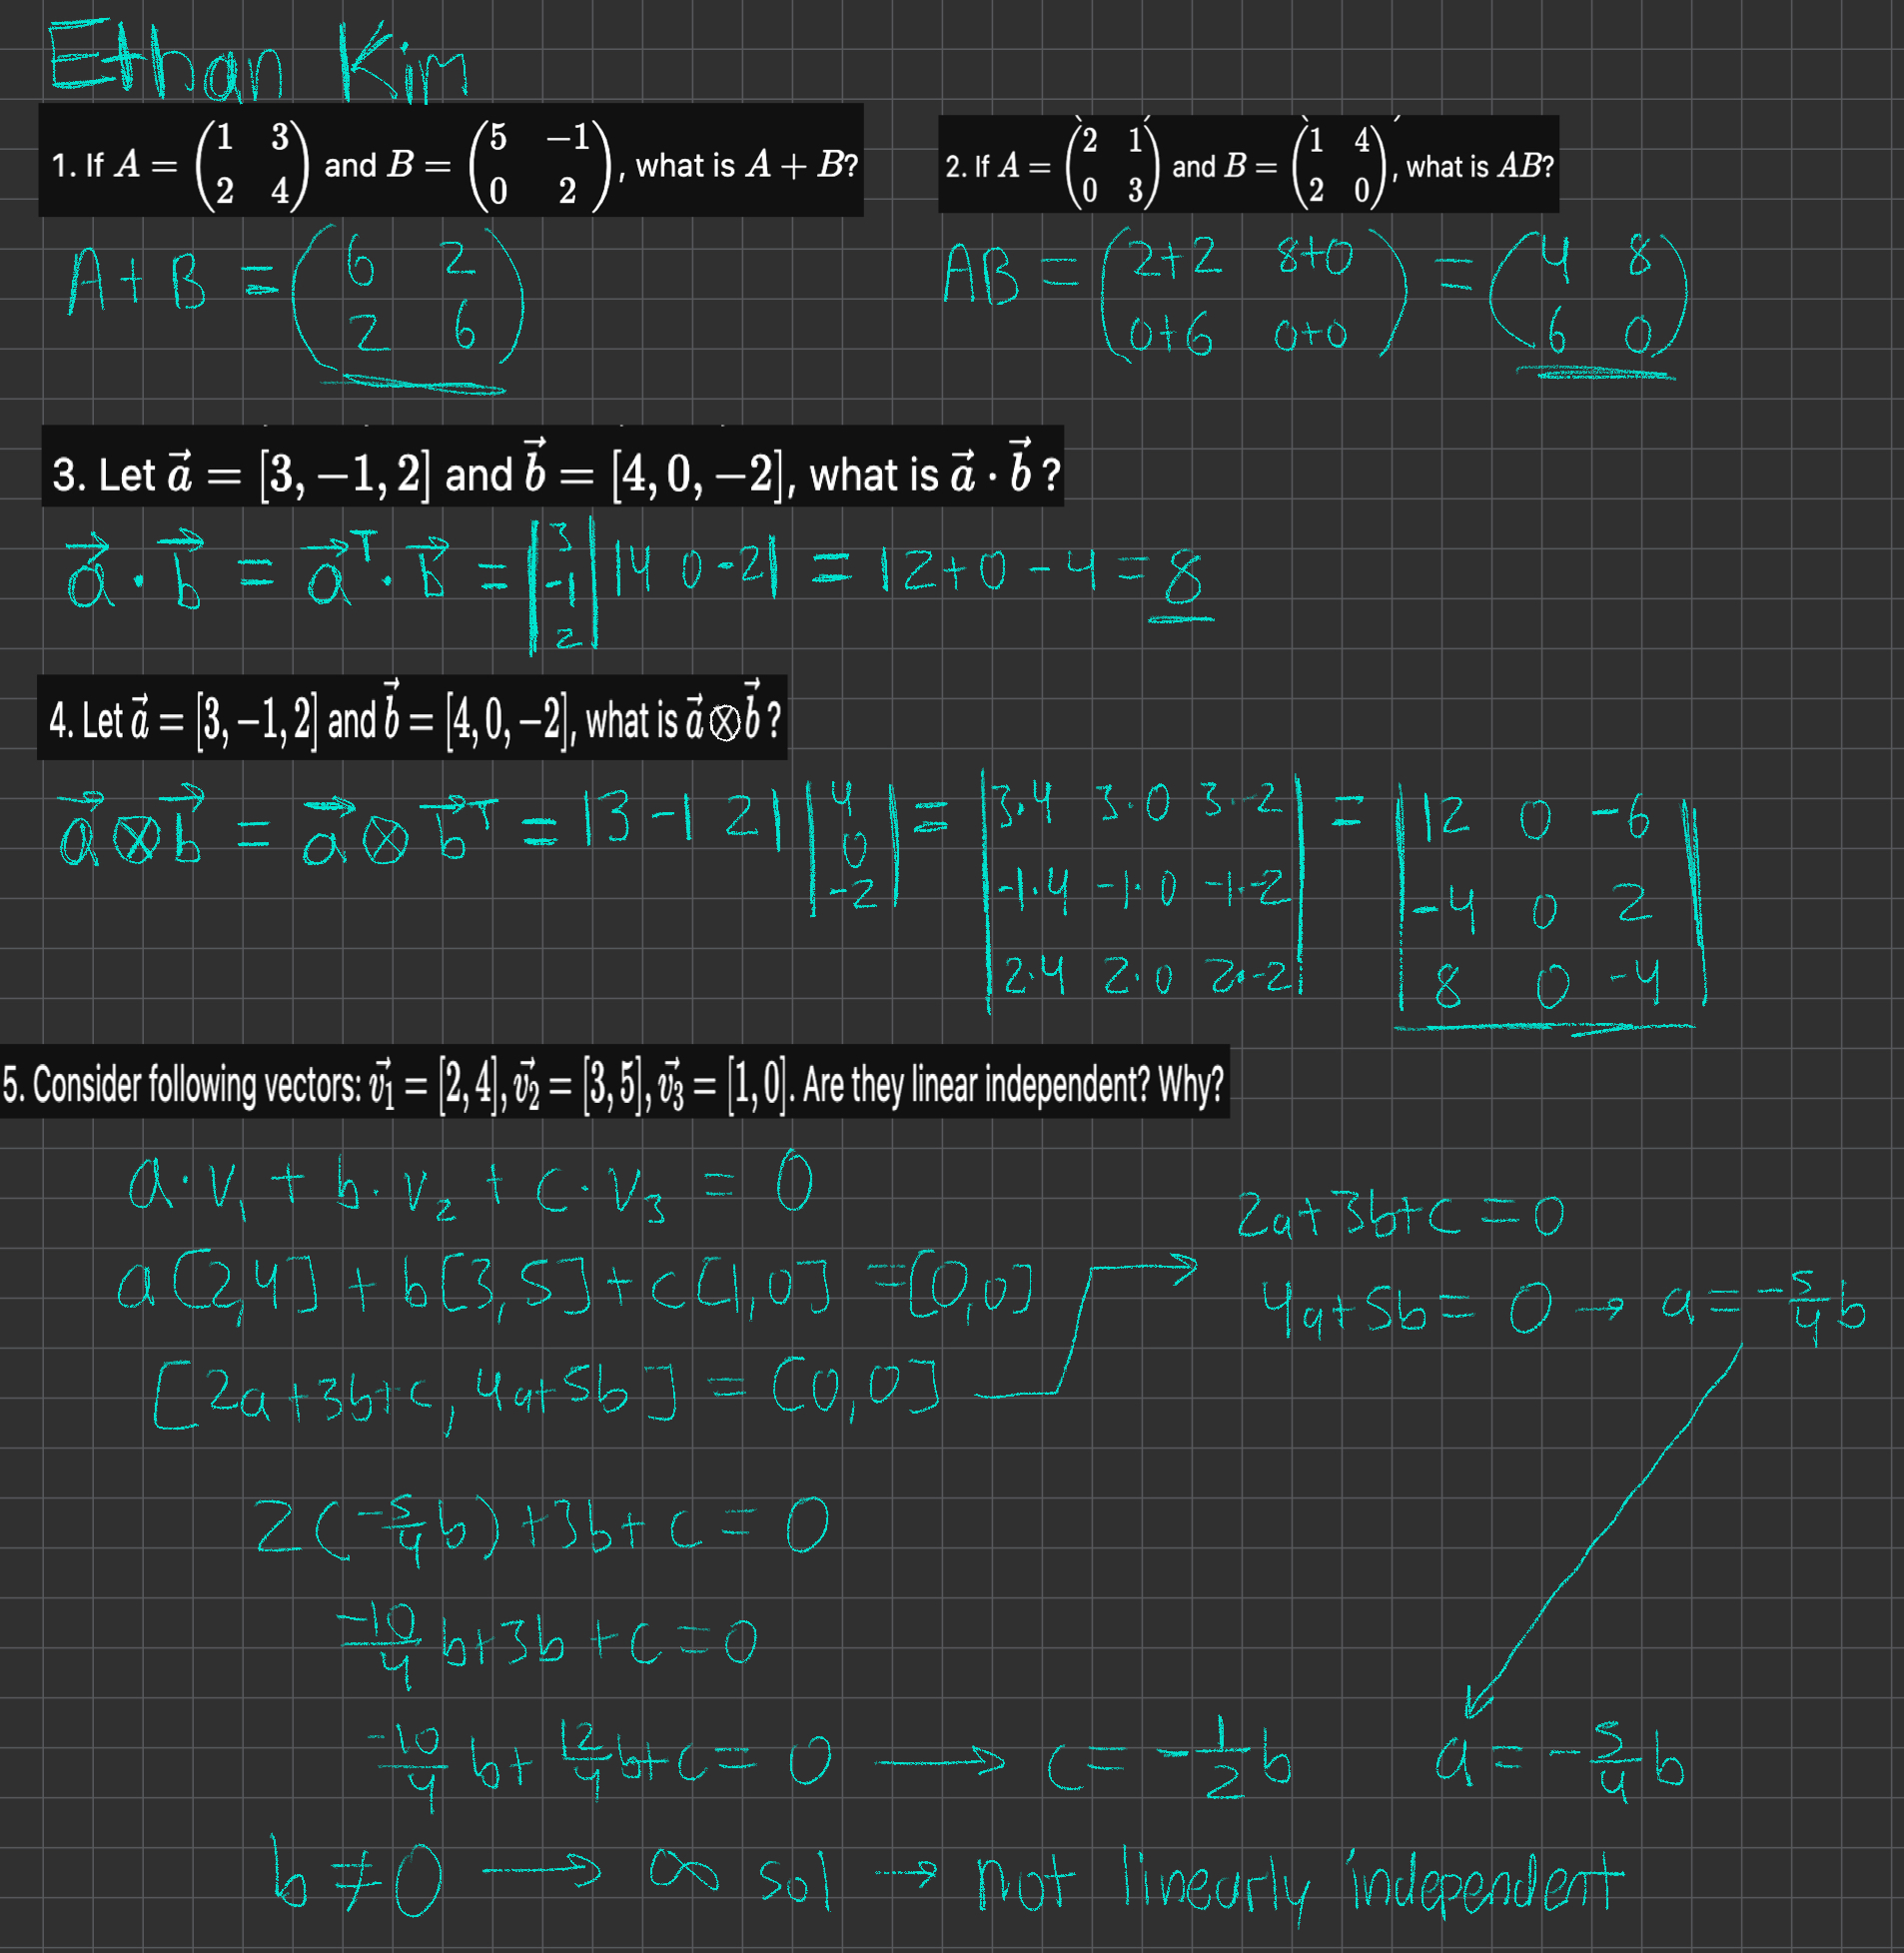 Ethan Kim
1. If A = (1 3 2 4) and B = (5 −1 0 2), what is A + B?
A+B = (6 2 2 6)
2. If A = (2 1 0 3) and B = (1 4 2 0), what is AB?
AB = (2+2 8+0 0+6 0+0) = (4 8 6 0)
3. Let a⃗ = [3, −1, 2] and b⃗ = [4, 0, −2], what is a⃗ · b⃗ ?
a⃗ · b⃗ = a⃗ᵀ · b⃗ = |3 -1 2| |4 0 -2| = 12+0-4 = 8
4. Let a⃗ = [3, −1, 2] and b⃗ = [4, 0, −2], what is a⃗ ⊗ b⃗ ?
a⃗ ⊗ b⃗ = a⃗ ⊗ b⃗ᵀ = |3 -1 2| |4 0 -2| = |3·4 3·0 3·-2 -1·4 -1·0 -1·-2 2·4 2·0 2·-2| = |12 0 -6 -4 0 2 8 0 -4|
5. Consider following vectors: v⃗₁ = [2, 4], v⃗₂ = [3, 5], v⃗₃ = [1, 0]. Are they linear independent? Why?
a·v₁ + b·v₂ + c·v₃ = 0
a[2,4] + b[3,5] + c[1,0] = [0,0]
[2a+3b+c, 4a+5b] = [0,0] →
2a+3b+c = 0
4a+5b = 0 → a = -5/4 b
2(-5/4 b) + 3b + c = 0
-10/4 b + 3b + c = 0
-10/4 b + 12/4 b + c = 0 → c = -1/2 b a = -5/4 b
b ≠ 0 → ∞ sol → not linearly independent